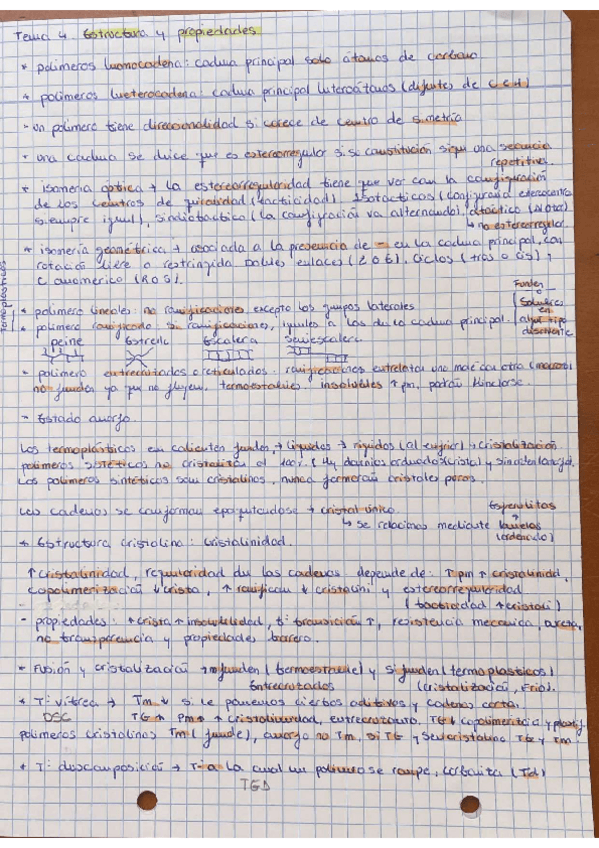 Tema 4. Estructura y propiedades
* polímeros homocadena: cadena principal solo átomos de carbono
* polímeros heterocadena: cadena principal heteroátomos (difutes de C e H)
- un polímero tiene direccionalidad si carece de centro de simetría
- una cadena se dice que es estereorregular si se constitución sigue una secuencia
repetitiva.
* isomería óptica → La estereorregularidad tiene que ver con la configuración
de los centros de quiralidad (tacticidad). Isotácticos (configuración
siempre igual), sindiotáctica (la configuración va alternando), atáctico
↳ no estereorregular.
* isomería geométrica → asociada a la presencia de = en la cadena principal, con
rotación libre o restringida dobles enlaces (Z o E), ciclos (tras o cis) y
C anomérico (R o S).
termoplásticos
Funden
(Solubles
en
algún tipo
disolvente
* polímero lineales: no ramificaciones excepto los grupos laterales
* polímero ramificado: si ramificaciones, iguales a las de la cadena principal.
peine Estrella Escalera Semiescalera
- polímero entrecruzados o reticulados: ramificaciones entrelazan una molécula otra
no funden ya que no fluyen, termoestables insolubles ↑ pm, podrán hincharse.
- Estado amorfo.
Los termoplásticos en calientes funden → líquidos → rígidos (al enfriar) → cristalización
polímeros sintéticos no cristalizan al 100%. (Hay dominios ordenados (cristal) y sin ordenar
Los polímeros sintéticos sean cristalinos, nunca formarán cristales puros.
Las cadenas se conforman → cristal único.
↳ se relacionan mediante lamelas
Esferulitas
(ordenado)
* Estructura cristalina: cristalinidad.
↑ cristalinidad, regularidad de las cadenas depende de: ↑ pm ↑ cristalinidad,
copolimerización ↓ crista, ↑ ramifican ↓ cristalini y estereorregularidad
(tacticidad ↑ cristali)
- propiedades: ↑ crista ↑ insolubilidad, tª transición ↑, resistencia mecánica,
no transparencia y propiedades barrera.
* Fusión y cristalización → no funden (termoestable) y si funden (termoplásticos)
Entrecruzados (cristalización, Frío).
* Tª vítrea → Tm ↓ si le ponemos ciertos aditivos y cadenas corta.
DSC TG ↑ pm ↑ ↑ cristalinidad, entrecruzado. TG ↓ copolimeriza y plastif
polímeros cristalinos Tm (funde), amorfo no Tm, si TG y semicristalino TG y Tm.
* Tª descomposición → Tª a la cual un polímero se rompe, carboniza (Td)
TGA